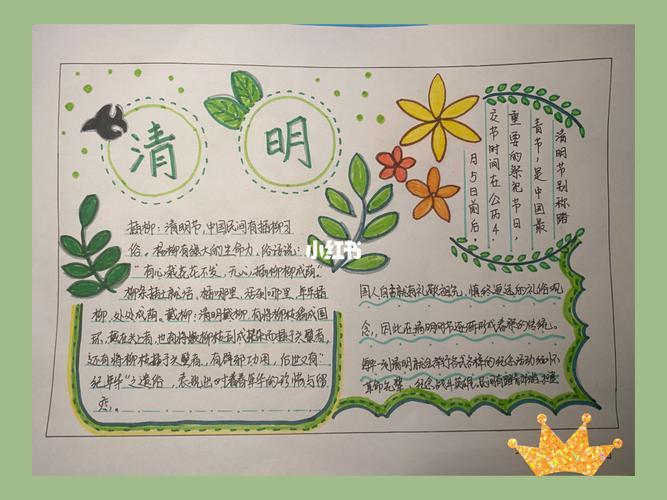 清
明
清明节别称踏
青节，是中国最
重要的祭祀节日，
交节时间在公历4
月5日前后
插柳：清明节，中国民间有插柳习
俗。杨柳有强大的生命力，俗话说：
“有心栽花花不发，无心插柳柳成荫。”
柳条插土就活，插哪里，活到哪里，年年插
柳，处处成荫。戴柳：清明戴柳，有将柳枝编成圆
环，戴在头上者，也有将嫩柳枝
还有将柳枝插于头髻者，有辟邪功用，后世又有“
纪年华”之遗俗，表现出对着青春年华的珍惜与留
恋。
小红书
国人自古就有礼敬祖先，慎终追远的礼俗观
念，因此在清明节还逐渐形成祭祭的传统。
每年一到清明就会举行各式各样的纪念活动
革命先辈，纪念战斗英雄，民间有